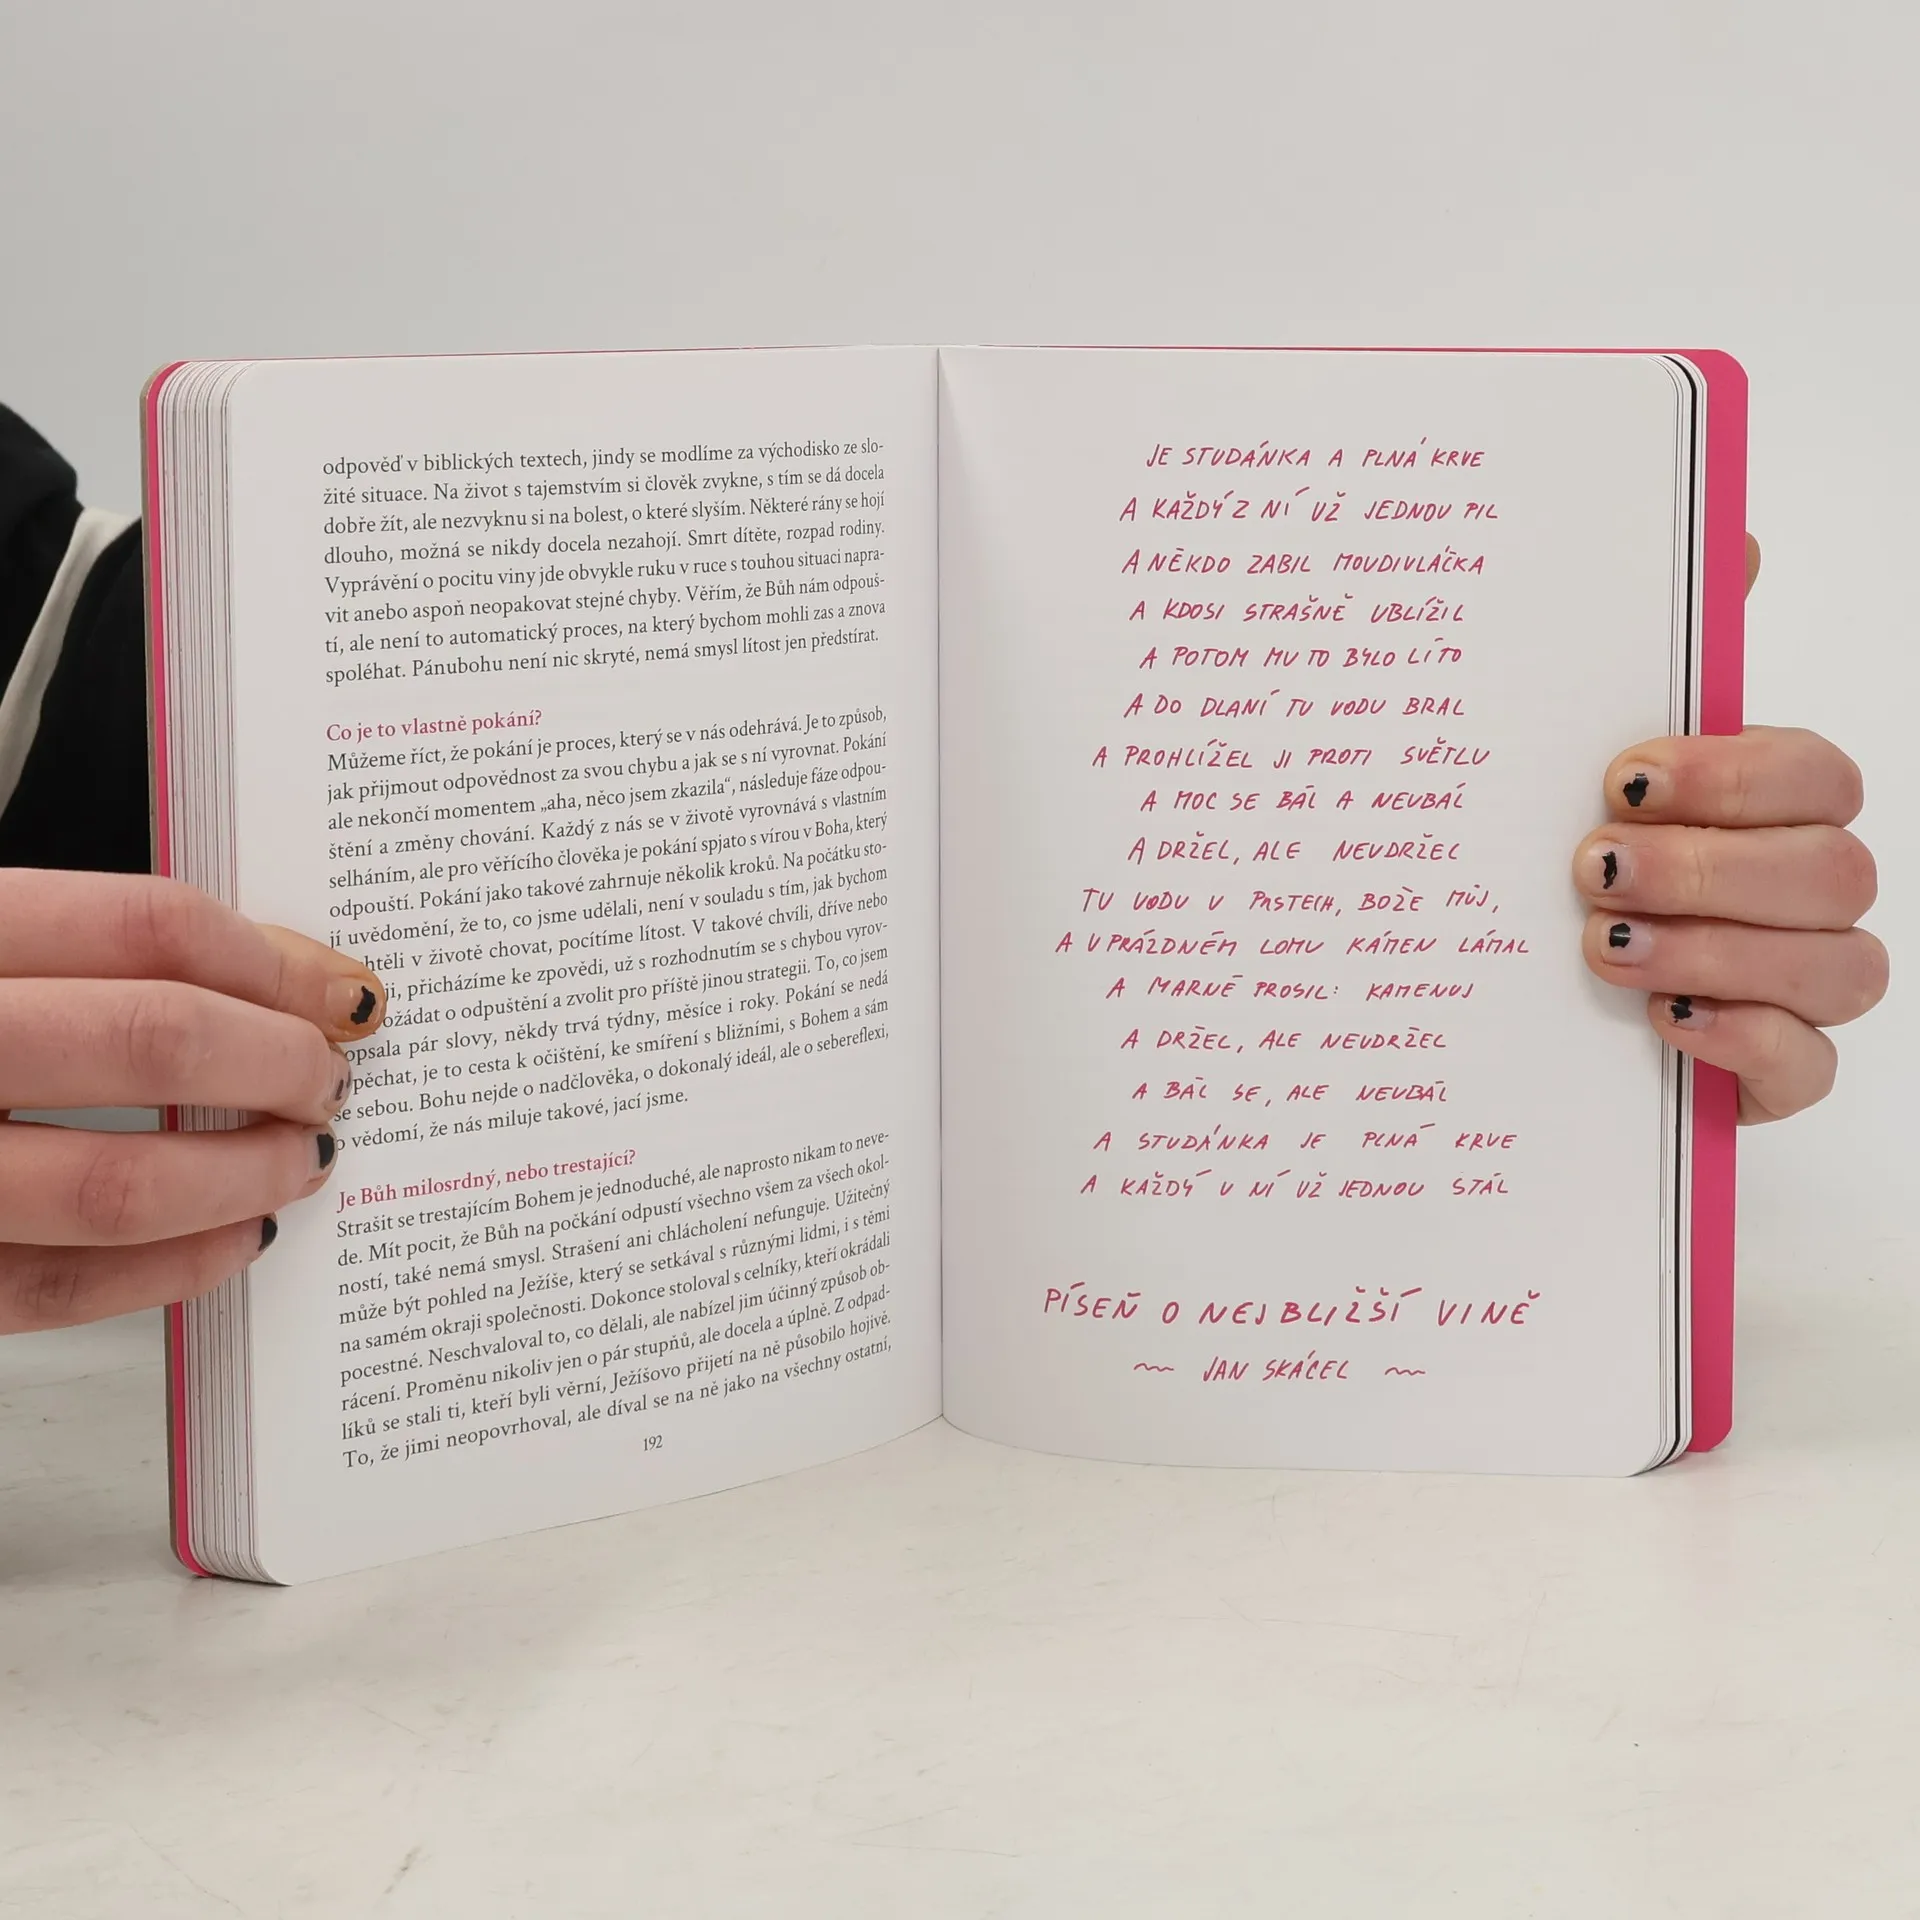 odpověď v biblických textech, jindy se modlíme za východisko ze slo-
žité situace. Na život s tajemstvím si člověk zvykne, s tím se dá docela
dobře žít, ale nezvyknu si na bolest, o které slyším. Některé rány se hojí
dlouho, možná se nikdy docela nezahojí. Smrt dítěte, rozpad rodiny.
Vyprávění o pocitu viny jde obvykle ruku v ruce s touhou situaci napra-
vit anebo aspoň neopakovat stejné chyby. Věřím, že Bůh nám odpouš-
tí, ale není to automatický proces, na který bychom mohli zas a znova
spoléhat. Pánubohu není nic skryté, nemá smysl lítost jen předstírat.
Co je to vlastně pokání?
Můžeme říct, že pokání je proces, který se v nás odehrává. Je to způsob,
jak přijmout odpovědnost za svou chybu a jak se s ní vyrovnat. Pokání
ale nekončí momentem „aha, něco jsem zkazila“, následuje fáze odpou-
štění a změny chování. Každý z nás se v životě vyrovnává s vlastním
selháním, ale pro věřícího člověka je pokání spjato s vírou v Boha, který
odpouští. Pokání jako takové zahrnuje několik kroků. Na počátku sto-
jí uvědomění, že to, co jsme udělali, není v souladu s tím, jak bychom
htěli v životě chovat, pocítíme lítost. V takové chvíli, dříve nebo
ji, přicházíme ke zpovědi, už s rozhodnutím se s chybou vyrov-
ožádat o odpuštění a zvolit pro příště jinou strategii. To, co jsem
opsala pár slovy, někdy trvá týdny, měsíce i roky. Pokání se nedá
pěchat, je to cesta k očištění, ke smíření s bližními, s Bohem a sám
se sebou. Bohu nejde o nadčlověka, o dokonalý ideál, ale o sebereflexi,
o vědomí, že nás miluje takové, jací jsme.
Je Bůh milosrdný, nebo trestající?
Strašit se trestajícím Bohem je jednoduché, ale naprosto nikam to neve-
de. Mít pocit, že Bůh na počkání odpustí všechno všem za všech okol-
ností, také nemá smysl. Strašení ani chlácholení nefunguje. Užitečný
může být pohled na Ježíše, který se setkával s různými lidmi, i s těmi
na samém okraji společnosti. Dokonce stoloval s celníky, kteří okrádali
pocestné. Neschvaloval to, co dělali, ale nabízel jim účinný způsob ob-
rácení. Proměnu nikoliv jen o pár stupňů, ale docela a úplně. Z odpad-
líků se stali ti, kteří byli věrní, Ježíšovo přijetí na ně působilo hojivě.
To, že jimi neopovrhoval, ale díval se na ně jako na všechny ostatní,
192
JE STUDÁNKA A PLNÁ KRVE
A KAŽDÝ Z NÍ UŽ JEDNOU PIL
A NĚKDO ZABIL MOUDIVLÁČKA
A KDOSI STRAŠNĚ UBLÍŽIL
A POTOM MU TO BYLO LÍTO
A DO DLANÍ TU VODU BRAL
A PROHLÍŽEL JI PROTI SVĚTLU
A MOC SE BÁL A NEUBÁL
A DRŽEL, ALE NEUDRŽEL
TU VODU V PRSTECH, BOŽE MŮJ,
A V PRÁZDNÉM LOMU KÁMEN LÁMAL
A MARNĚ PROSIL: KAMENUJ
A DRŽEL, ALE NEUDRŽEL
A BÁL SE, ALE NEUBÁL
A STUDÁNKA JE PLNÁ KRVE
A KAŽDÝ U NÍ UŽ JEDNOU STÁL
PÍSEŇ O NEJBLIŽŠÍ VINĚ
~ JAN SKÁCEL ~